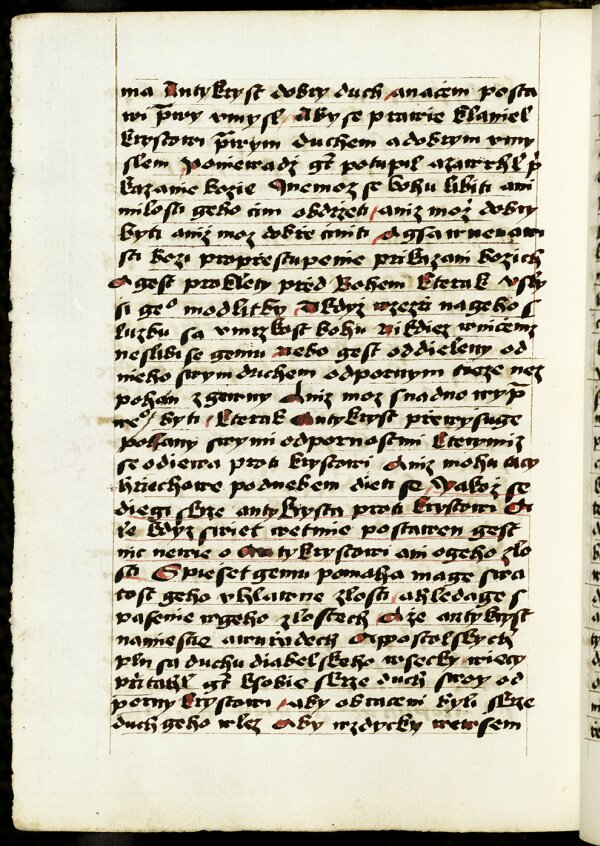 ma Antykryst dobry duch anacem posta
wi prwy vmysl Aby se prawie klaniel
krystowi prwym duchem a dobrym vmy
slem Poniewadz gt potupil azawrhl p
kazanie bozie Anemoz se bohu libiti ani
milosti geho cim obdrzeti aniz moz dobry
byti aniz moz dobre ciniti
sti bozi pro prestupenie prikazani bozich
A gest proklety pred Bohem kterak vsly
si geo modlitby A kdyz wzezri na geho s
luzbu sa vmrzkost bohu Nikdiez wnicemz
neslibi se gemu Nebo gest oddieleny od
nieho swym duchem odpornym tieze nez
pohan zgewny Aniz moz snadno wyp
weo byti kterak Antykryst prewysuge
pohany swymi odpornostmi kterymiz
se odiewa proti krystowi Aniz mohu tacy
hriechowe pod nebem dieti se Yakoz se
diegi skrze antykrysta proti krystowi A
le kdyz swiet wetmie postawen gest
nic newie o Antykrystowi ani o geho zlo
sti Spiese t gemu pomaha mage swa
tost geho vhlawne zlosti a hledage s
pasenie w geho zlostech A ze antykryst
namiestie awuradech Apostolskych
pln sa duchu diabelskeho wsecky wiecy
pritahl gt ksobie skrze duch swoy od
porny krystowi aby obraceni byli skrze
duch geho w lez Aby wzdycky wewsem